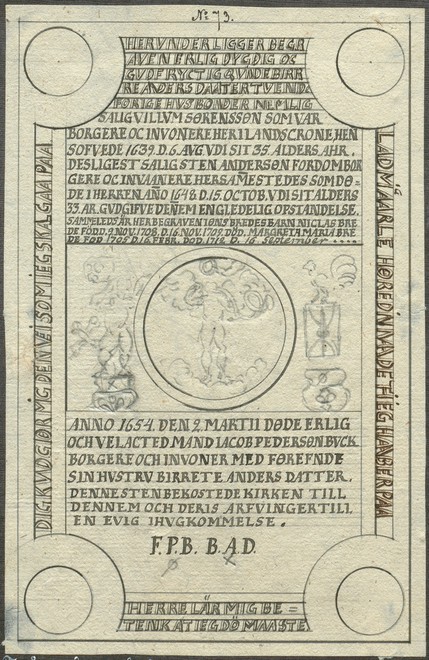 No 73.
HERVNDER LIGGER BEGR
AVEN ERLIG DYGDIG OC
GVDFRYCTIG QVINDE BIRR
RE ANDERS DAATER TVENDE
FORIGE HVSBONDER NEMLIG
SALIG VILLVM SØRENSSØN SOM VAR
BORGERE OC INVONERE HER I LANDSCRONE, HEN
SOF VEDE 1639. D. 6. AVG VDI SIT 35. ALDERS AHR.
DESLIGEST SALIG STEN ANDERSØN FORDOM BOR
GERE OC INVAANERE HERSAMESTEDES SOM DØ=
DE I HERREN AÑO 1648. D. 15. OCTOB. VDI SIT ALDERS
33. AR. GVD GIFVE DEÑEM EN GLEDELIG OPSTANDELSE.
SAMMELEDS ÄR HER BEGRAVEN IØNS BREDES BARN NICLAS BRE
DE FÖDD. 9. NOV. 1708. D. 16. NOV. 1709. DÖD. MARGRETA MARIA BRE
DE FÖD 1705 D. 16. FEBR. DÖD. 1712 D. 16. September ....
ANNO 1654. DEN 2. MARTII DØDE ERLIG
OCH VELACTED MAND IACOB PEDERSØN BVCK
BORGERE OCH INVONER MED FØREFNDE
SIN HVSTRV BIRRETE ANDERS DATTER.
DENNE STEN BEKOSTEDE KIRKEN TILL
DENNEM OCH DERIS ARFVINGER TILL
EN EVIG IHVGKOMMELSE.
F.P.B. B.A.D.
HERRE LÄR MIG BE=
TENK AT IEG DÖ MAASTE
DIG. KVDGIØR MG DEN VEI SOM IEG SKAL GAA PAA
LAD MIG AARLE HØRE DN NAADE THI IEG HAABER PAA